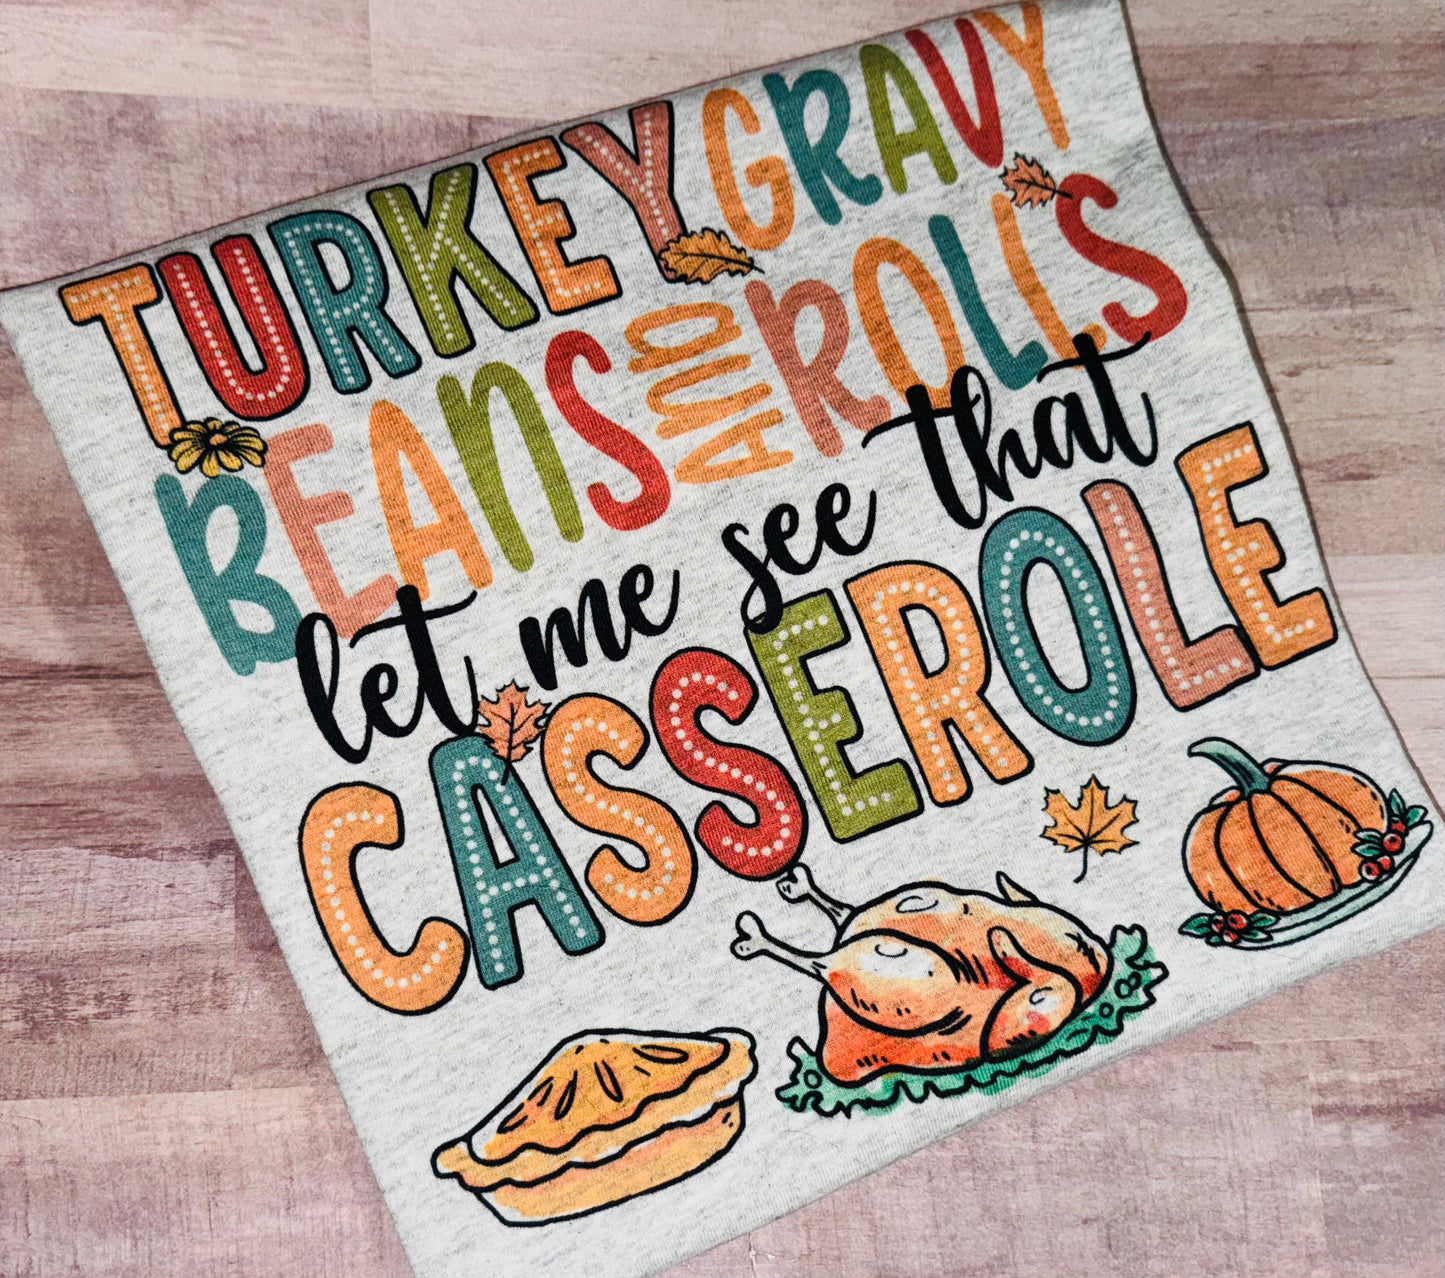 TURKEY GRAVY
BEANS AND ROLLS
let me see that
CASSEROLE